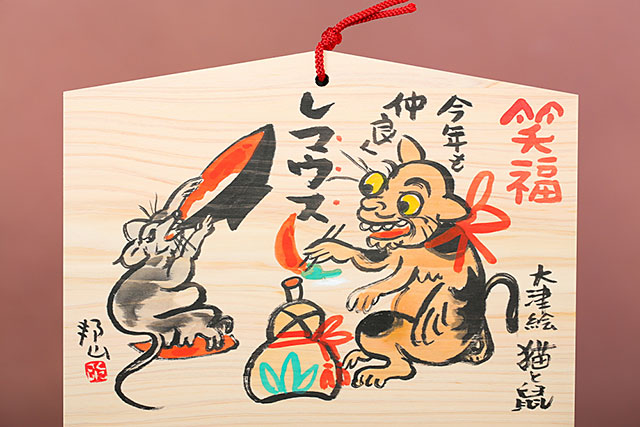 笑福
今年も
仲良く
レマウス
大津絵
猫と鼠
邦山